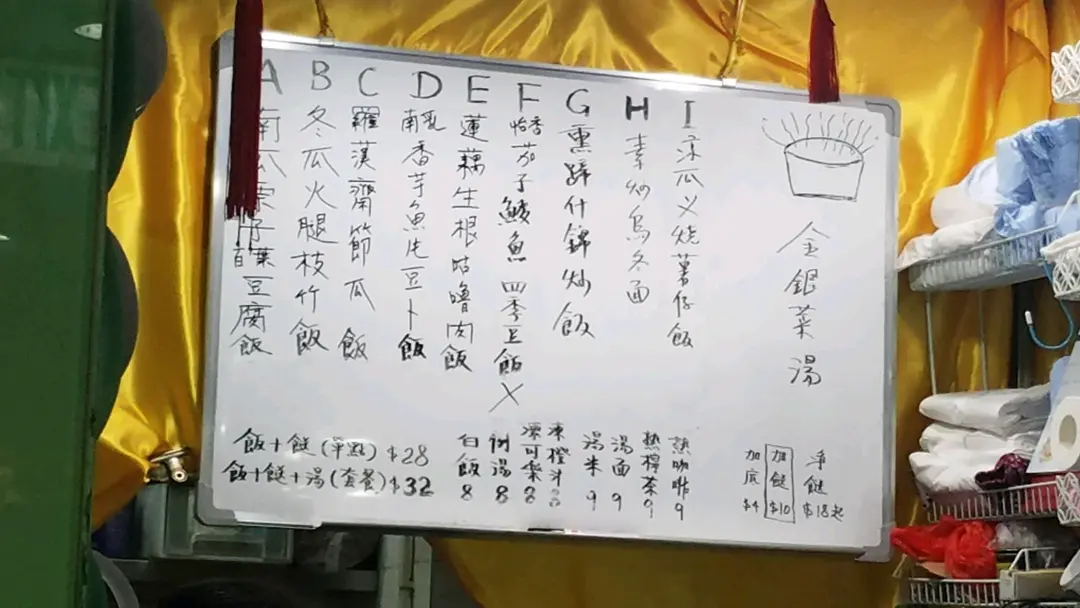 A
南瓜栗子百葉豆腐飯
B
冬瓜火腿枝竹飯
C
羅漢齋節瓜飯
D
南乳香芋魚片豆卜飯
E
蓮藕生根咕嚕肉飯
F
怡香茄子鯪魚四季豆飯 X
G
熏蹄什錦炒飯
H
素炒烏冬面
I
涼瓜义燒薯仔飯
金銀菜湯
飯+餸(單點) $28
飯+餸+湯(套餐) $32
白飯 8
例湯 8
凍可樂 8
凍橙汁 8
湯米 9
湯面 9
熱檸茶 9
熱咖啡 9
加底 $4
加餸 $10
淨餸 $18起